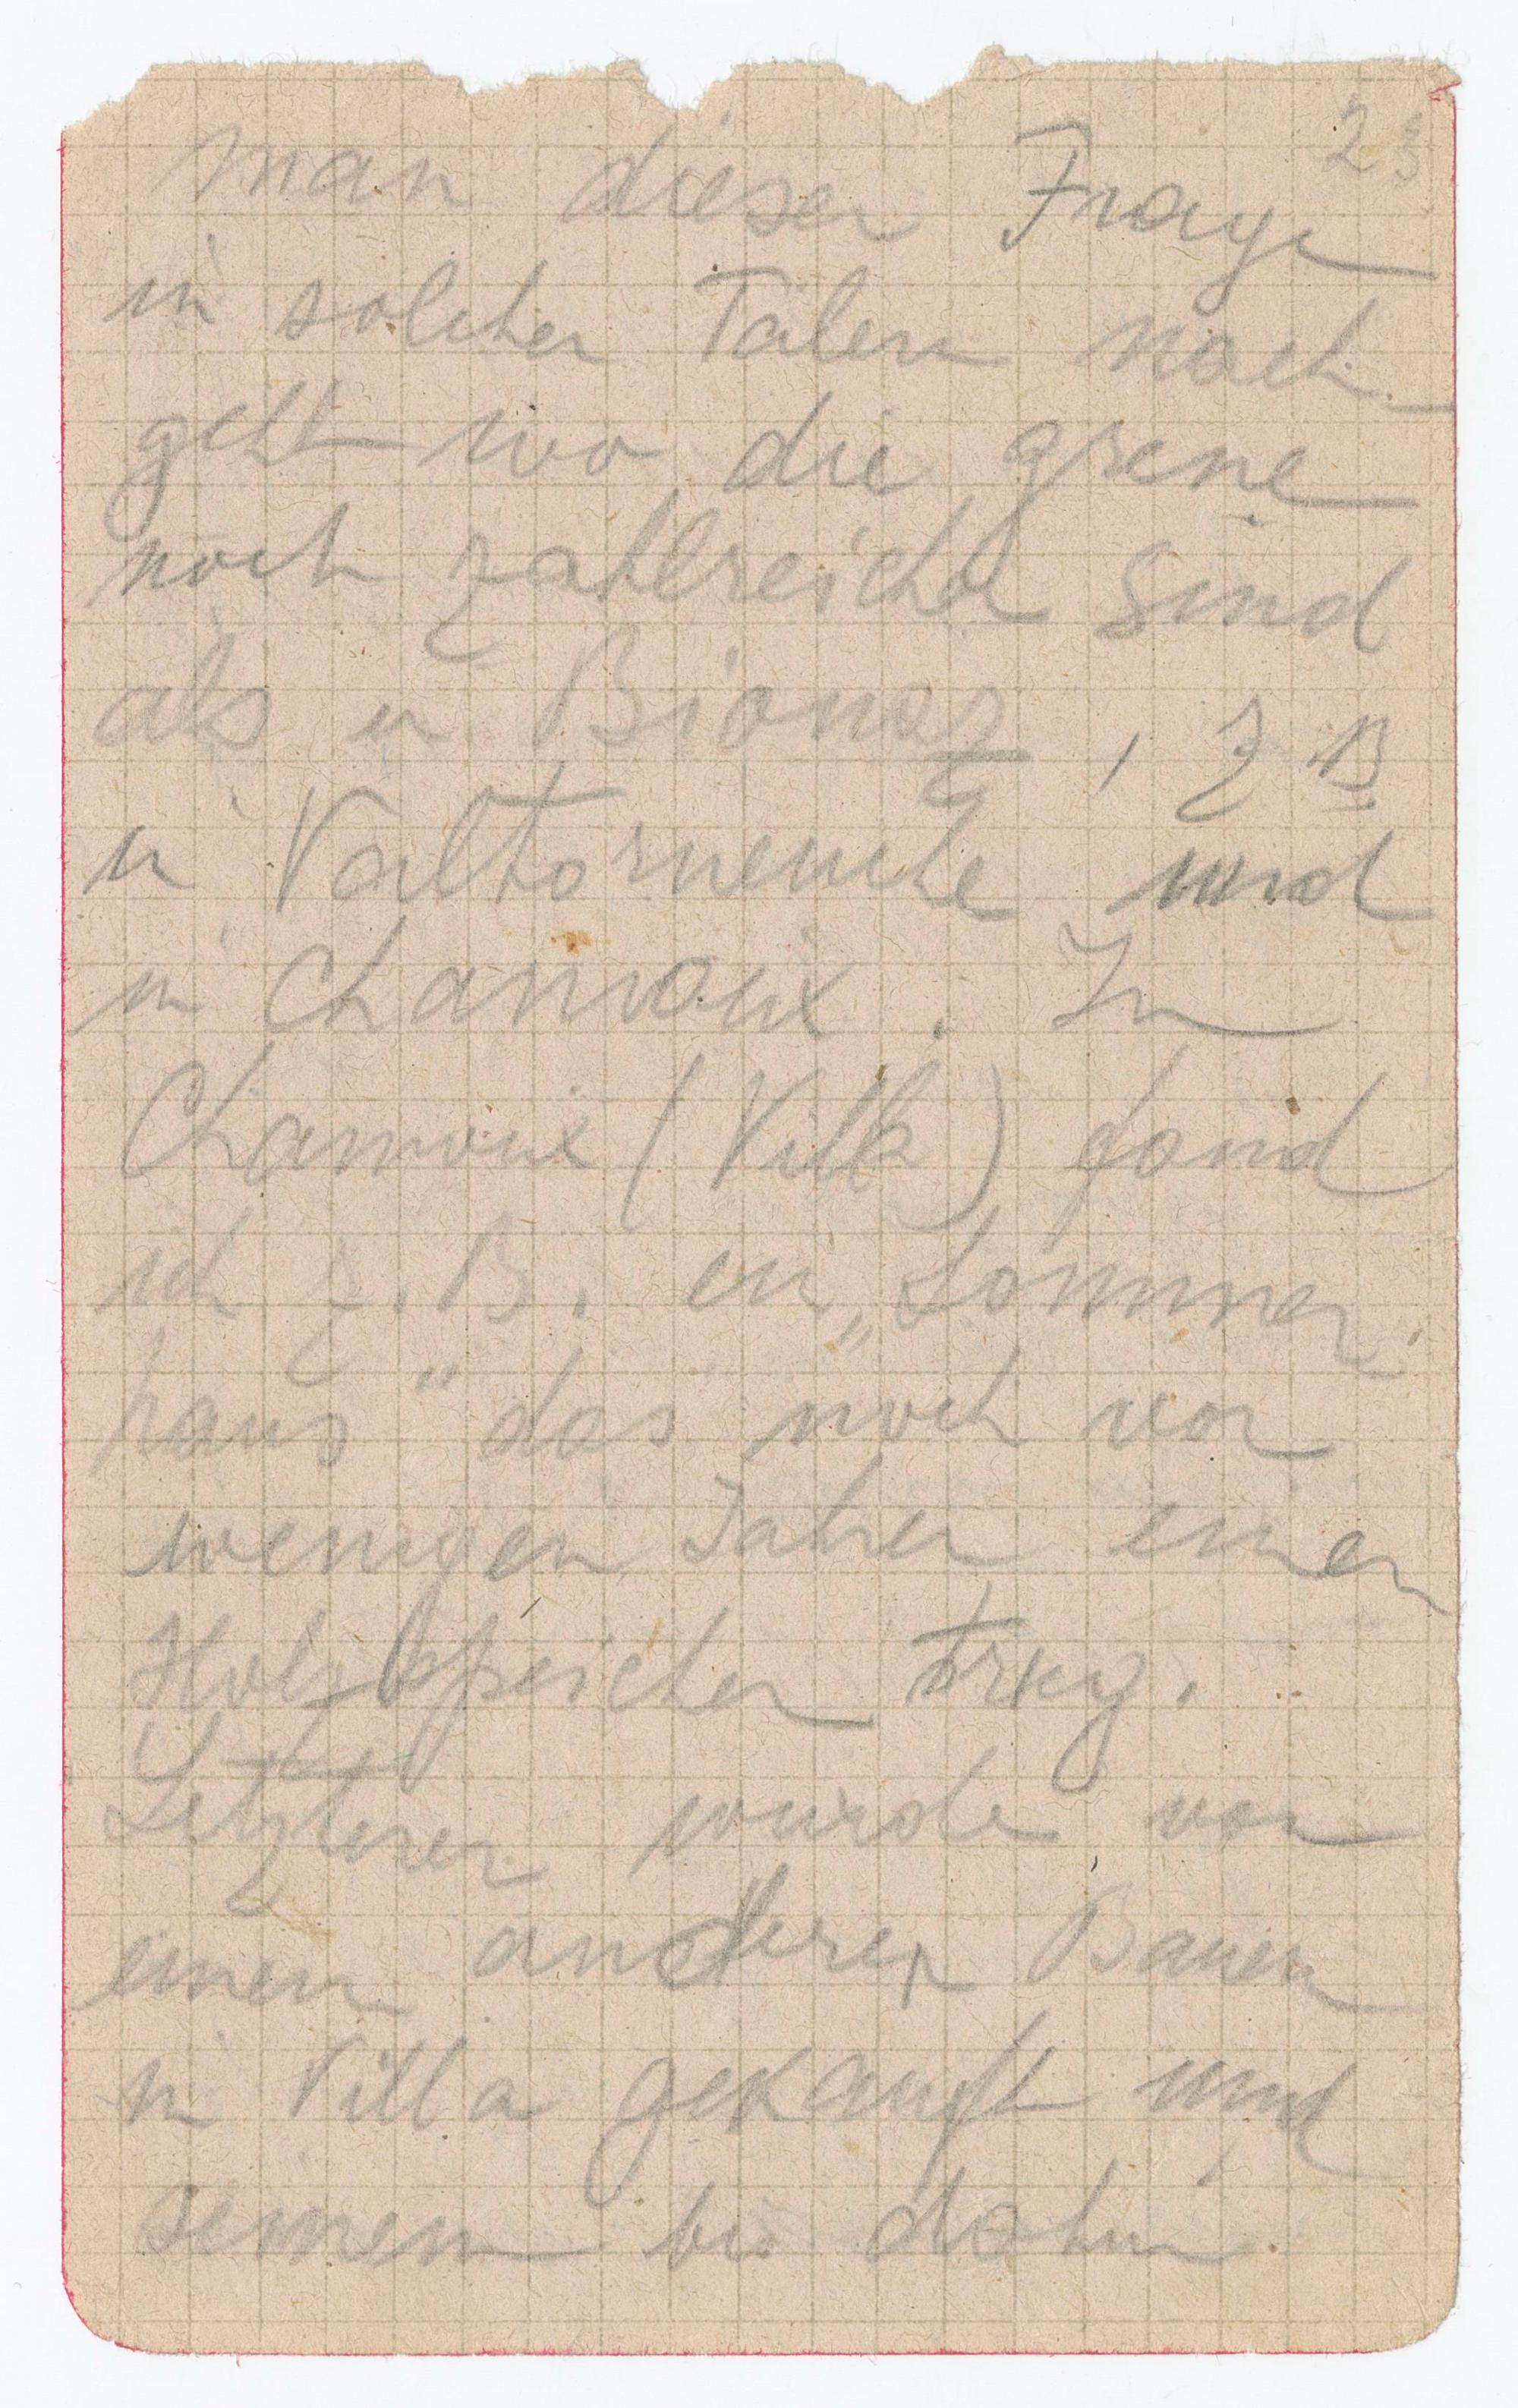 23
man dieser Frage
in solchen Tälern nach
geht wo die grene
noch zahlreicher sind
als in Bionaz, z B
in Valtornenche und
in Chamoix. In
Chamoix (Villa) fand
ich z. B. ein „Sommer
haus" das noch vor
wenigen Jahren einen
Holzspeicher trug.
Letzterer wurde von
einem anderen Bauern
in Villa gekauft und
seinem bis dahin